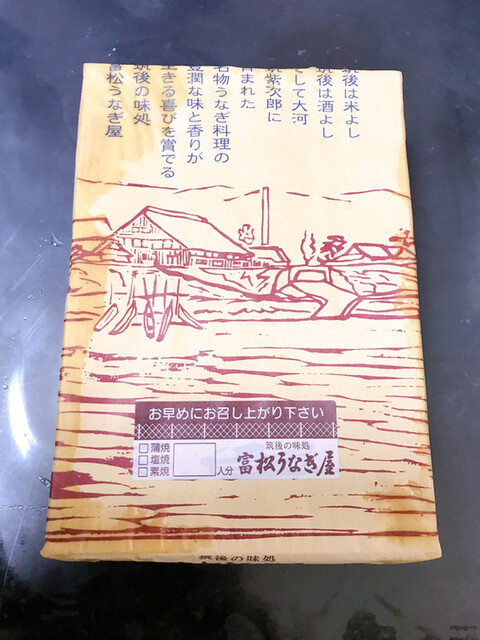 筑後は米よし
筑後は酒よし
そして大河
筑紫次郎に
育まれた
名物うなぎ料理の
豊潤な味と香りが
生きる喜びを賞でる
筑後の味処
富松うなぎ屋
お早めにお召し上がり下さい
□蒲焼
□塩焼
□素焼
人分
筑後の味処
富松うなぎ屋
筑後の味処